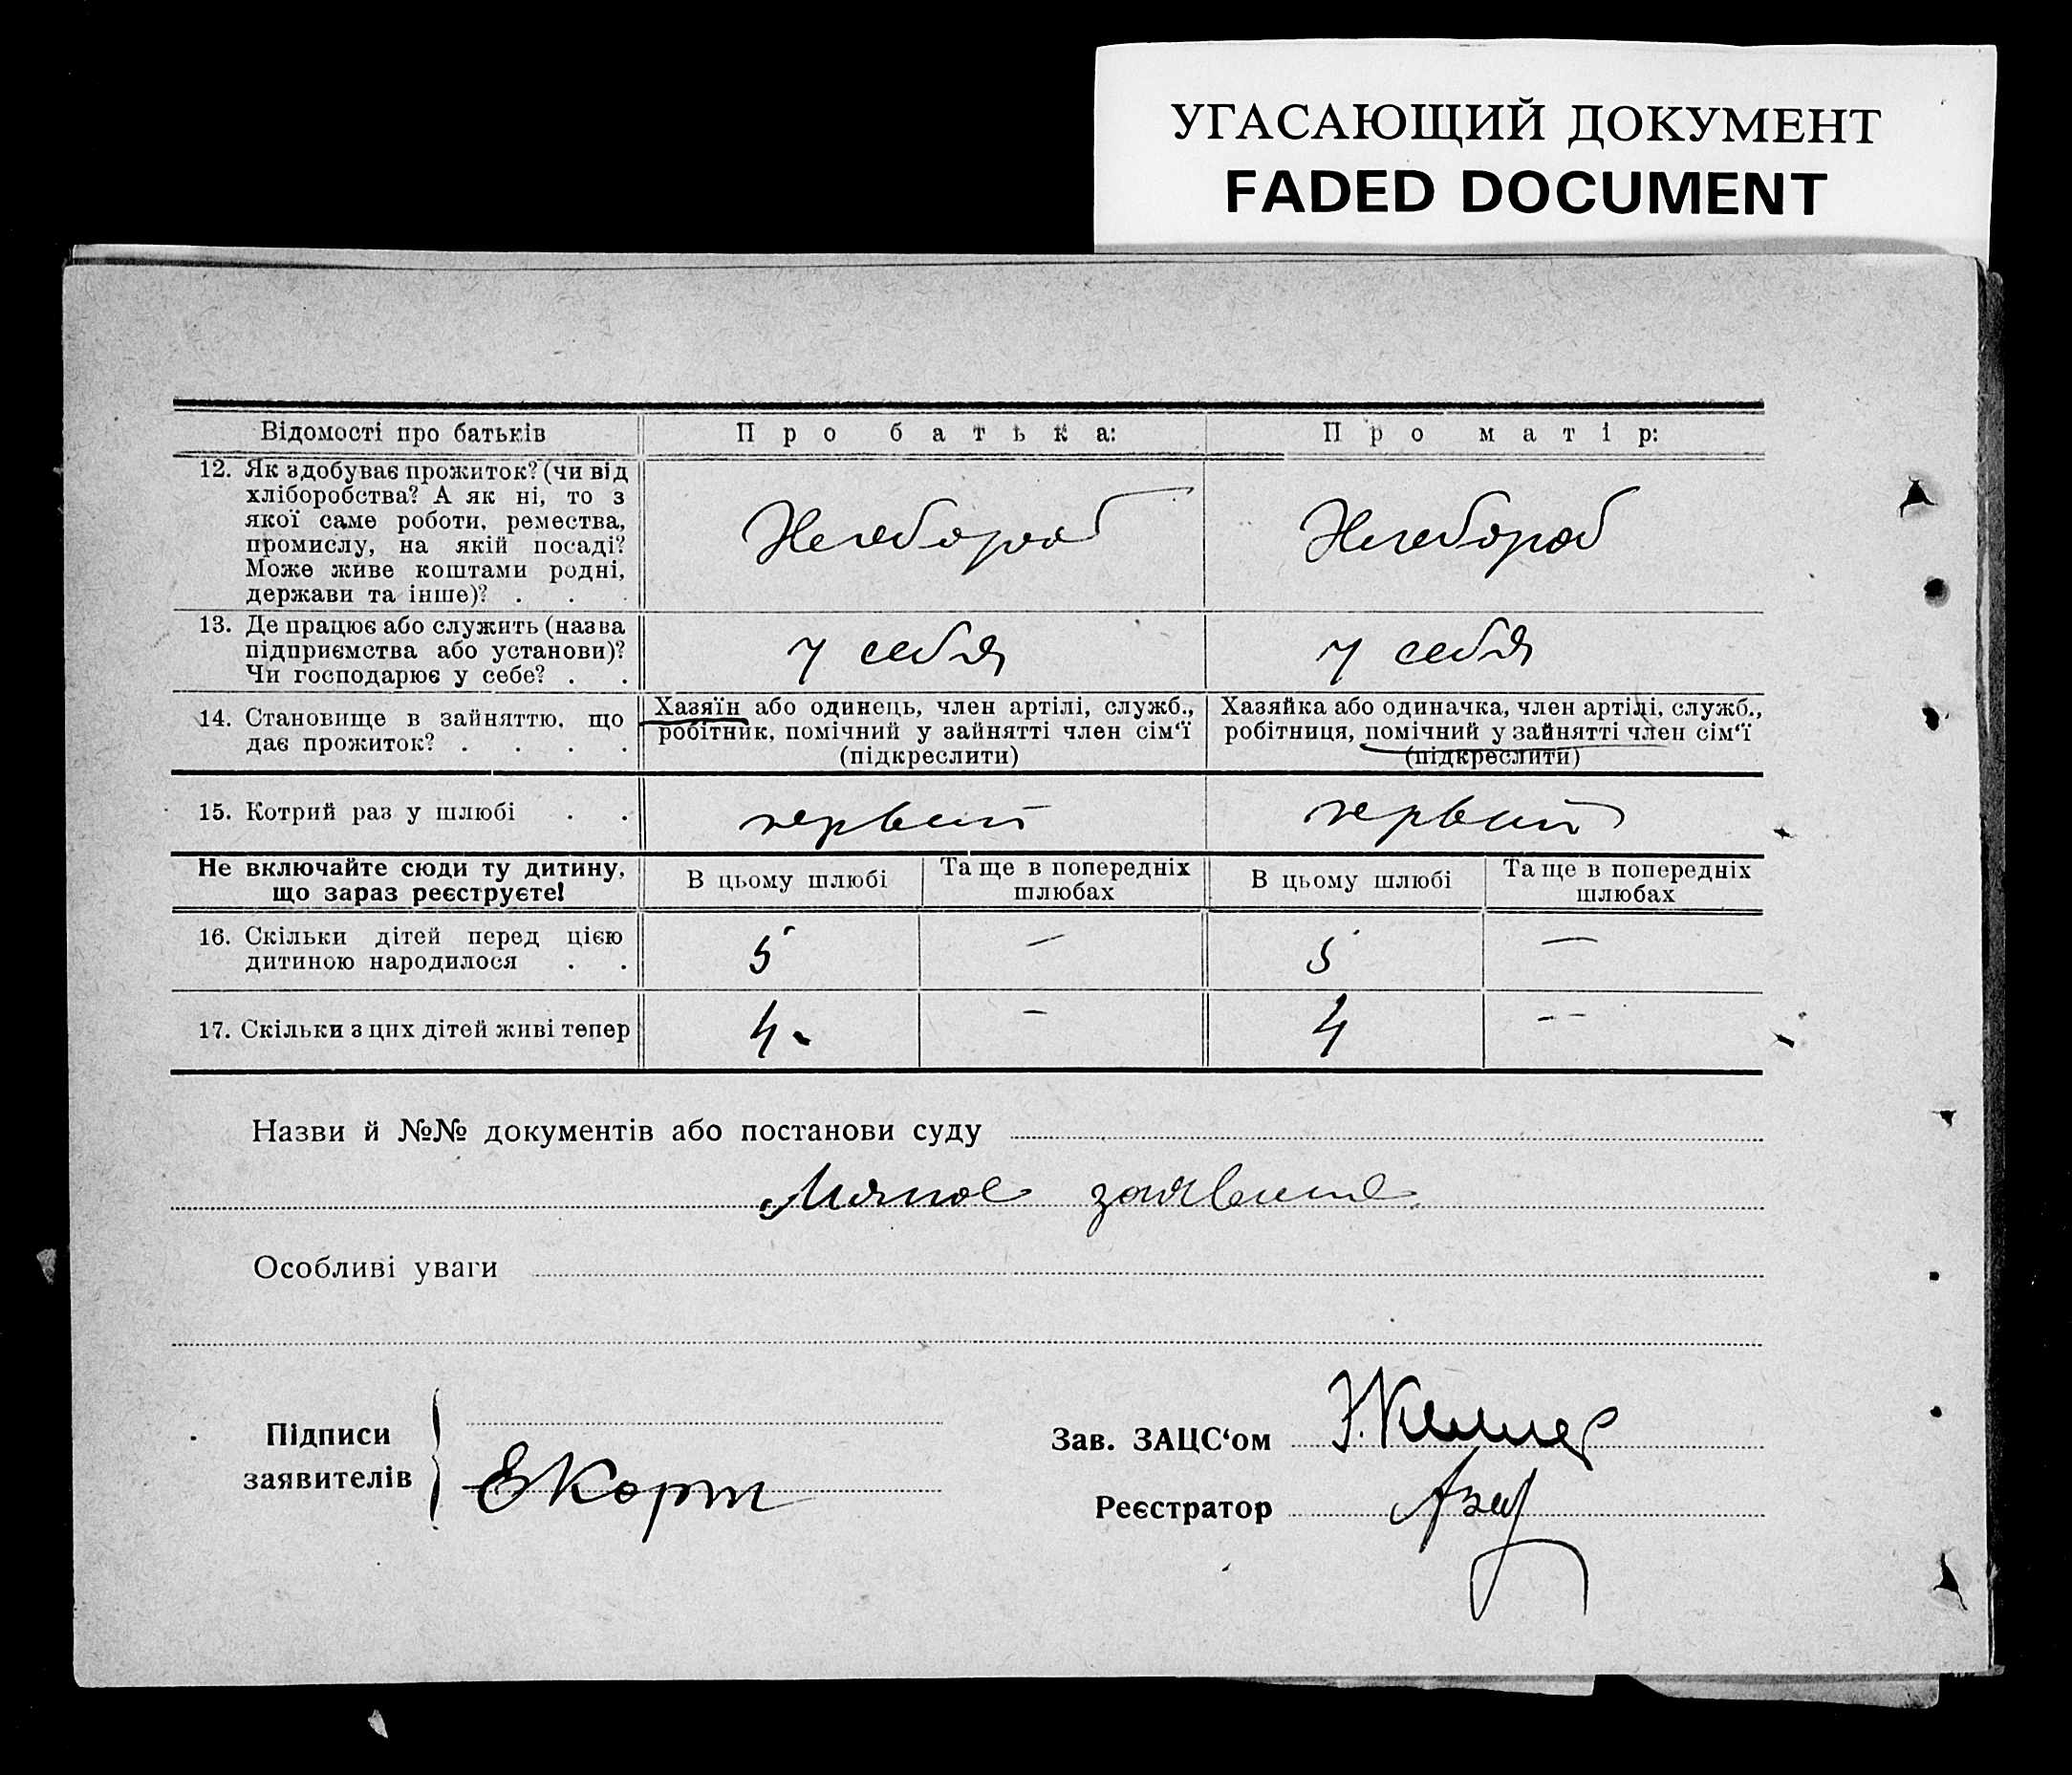 УГАСАЮЩИЙ ДОКУМЕНТ
FADED DOCUMENT
Відомості про батьків
Про батька:
Про матір:
12. Як здобуває прожиток? (чи від
хліборобства? А як ні, то з
якої саме роботи, ремества,
промислу, на якій посаді?
Може живе коштами родні,
держави та інше)? . .
Хлебороб
Хлебороб
13. Де працює або служить (назва
підприємства або установи)?
Чи господарює у себе? . .
у себя
у себя
14. Становище в зайняттю, що
дає прожиток? . . . .
Хазяїн або одинець, член артілі, служб.,
робітник, помічний у зайнятті член сім'ї
(підкреслити)
Хазяйка або одиначка, член артілі, служб.,
робітниця, помічний у зайнятті член сім'ї
(підкреслити)
15. Котрий раз у шлюбі . .
первый
первый
Не включайте сюди ту дитину,
що зараз реєструєте!
В цьому шлюбі
Та ще в попередніх
шлюбах
В цьому шлюбі
Та ще в попередніх
шлюбах
16. Скільки дітей перед цією
дитиною народилося . .
5
—
5
—
17. Скільки з цих дітей живі тепер
4
—
4
—
Назви й №№ документів або постанови суду
заявление
Особливі уваги
Підписи
заявителів
ЕКорт
Зав. ЗАЦС'ом
Реєстратор